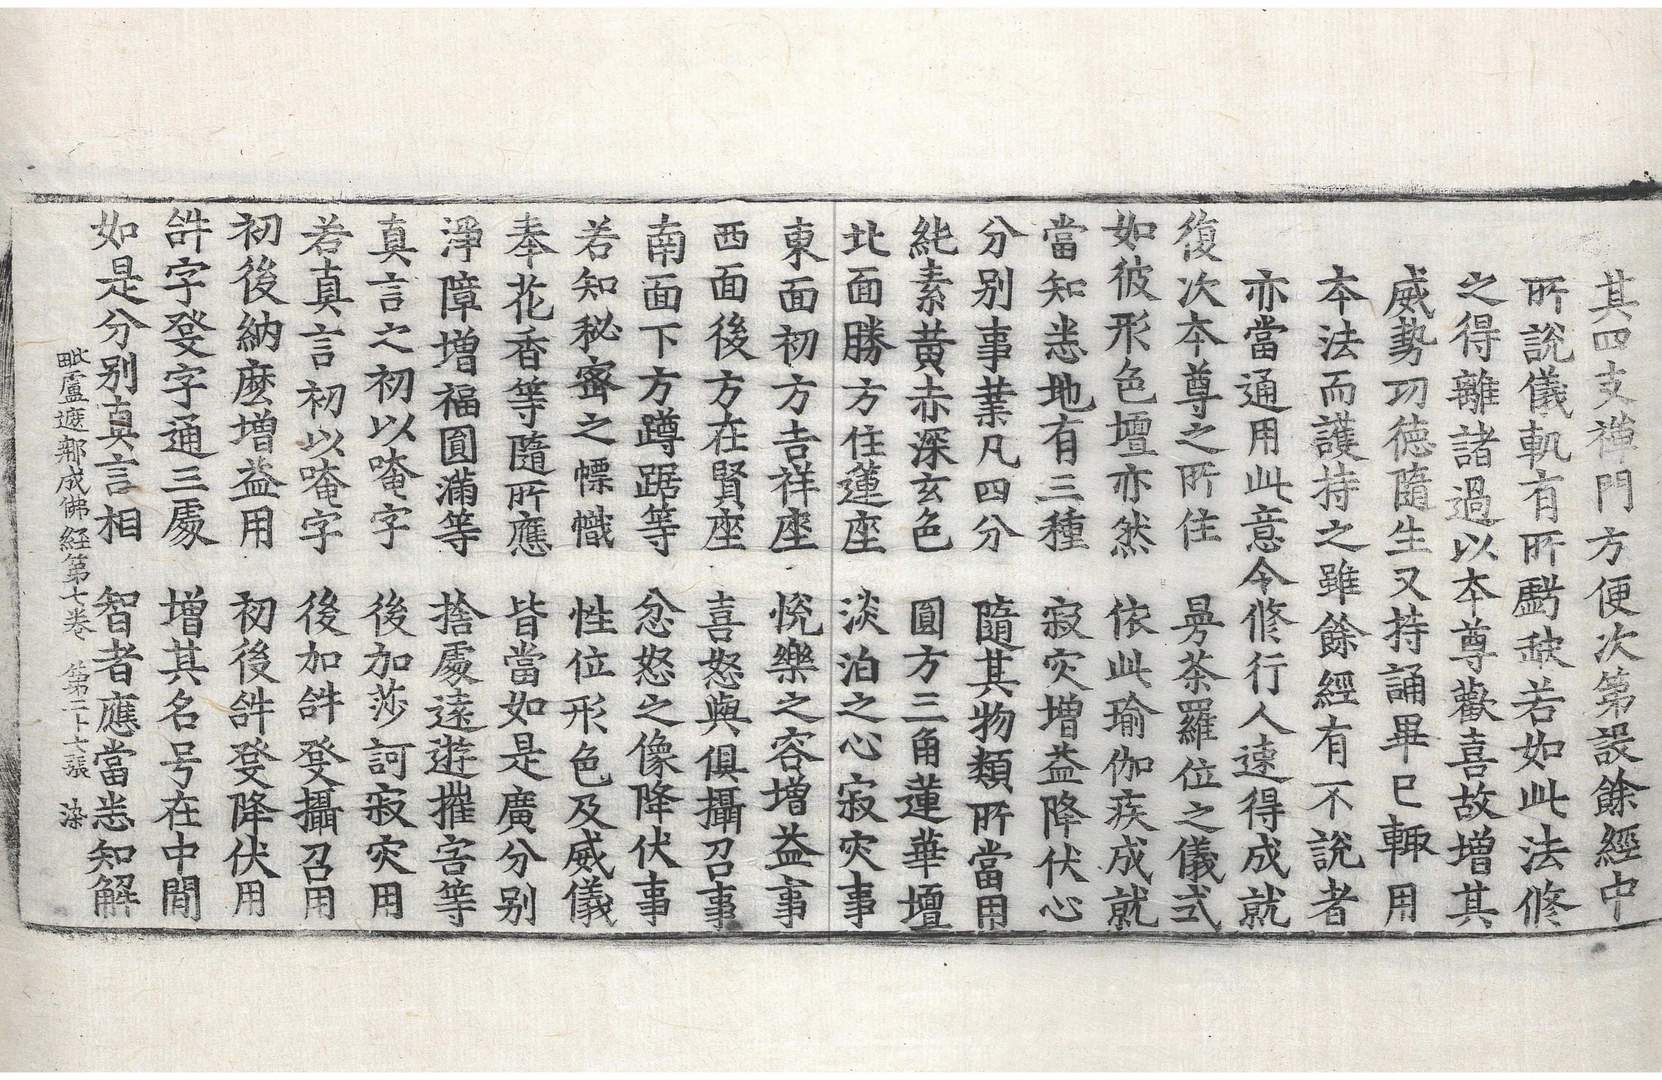 其四支禪門方便次第設餘經中
所說儀軌有所虧缺若如此法修
之得離諸過以本尊歡喜故增其
威勢功德隨生又持誦畢已輙用
本法而護持之雖餘經有不說者
亦當通用此意令修行人速得成就
復次本尊之所住　曼荼羅位之儀式
如彼形色壇亦然　依此瑜伽疾成就
當知悉地有三種　寂灾增益降伏心
分別事業凡四分　隨其物類所當用
純素黃赤深玄色　圓方三角蓮華壇
北面勝方住蓮座　淡泊之心寂灾事
東面初方吉祥座　悅樂之容增益事
西面後方在賢座　喜怒與俱攝召事
南面下方蹲踞等　忿怒之像降伏事
若知秘密之幖幟　性位形色及威儀
奉花香等隨所應　皆當如是廣分別
淨障增福圓滿等　捨處遠遊摧害等
真言之初以唵字　後加莎訶寂灾用
若真言初以唵字　後加𤙖發攝召用
初後納麽增益用　初後𤙖發降伏用
𤙖字發字通三處　增其名号在中間
如是分別真言相　智者應當悉知解
毗盧遮那成佛経第七卷　第二十七張　染